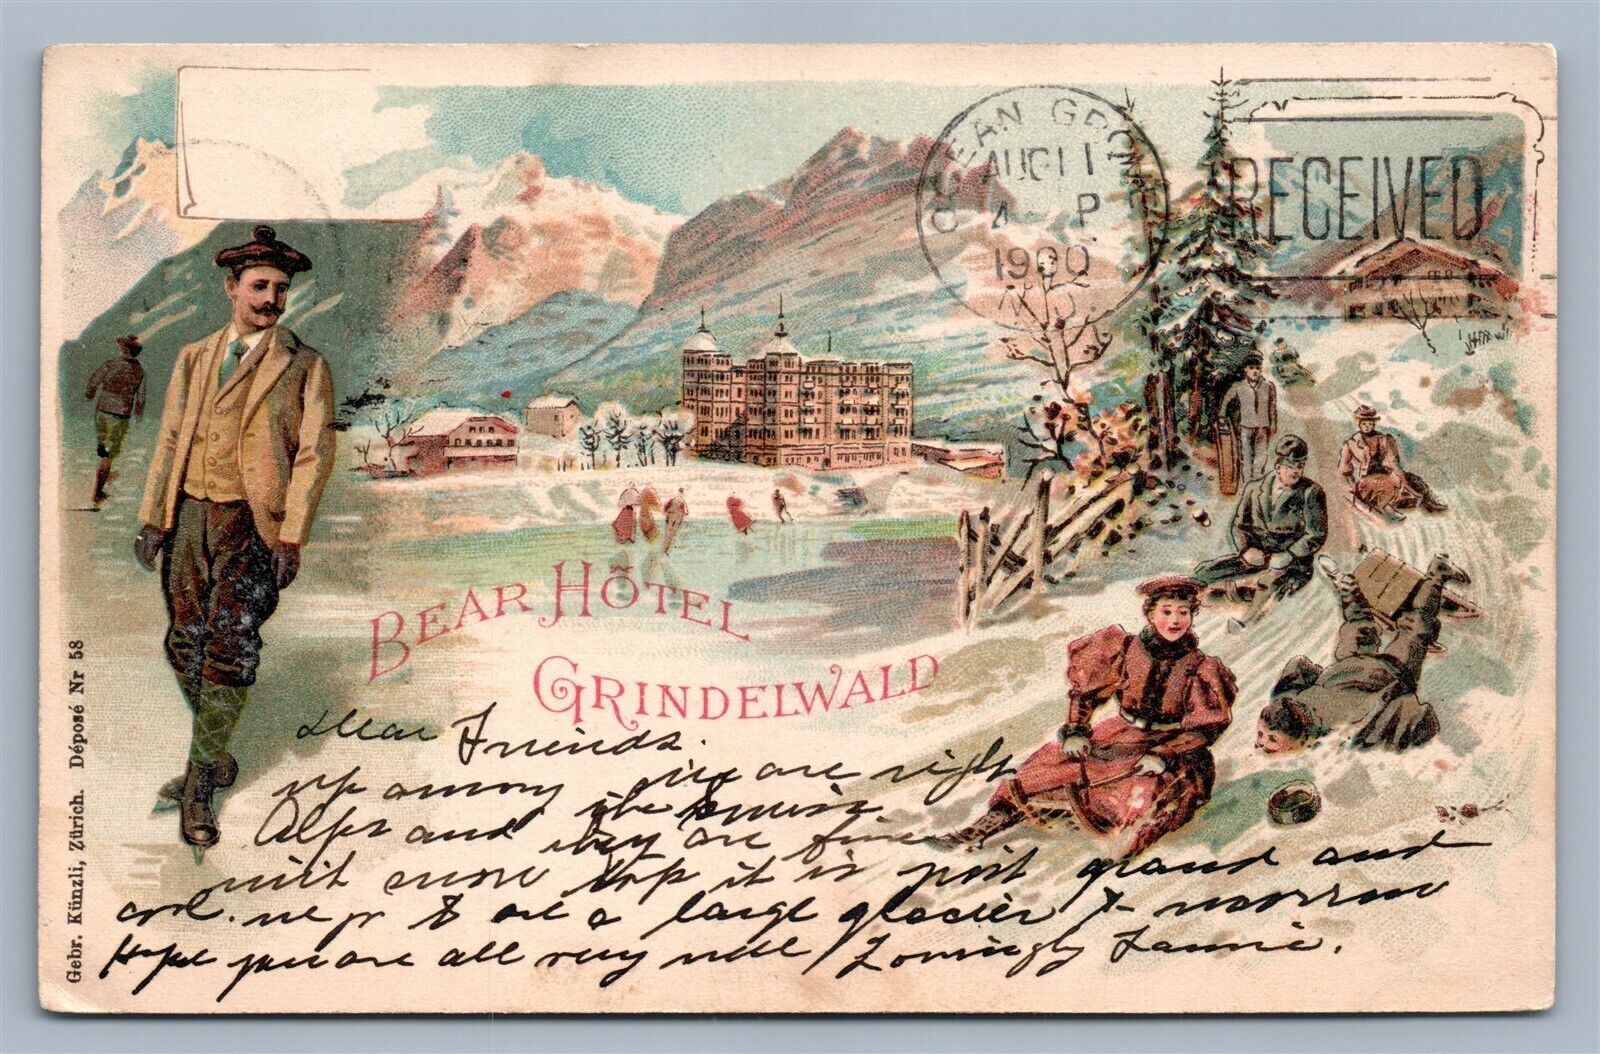 OCEAN GROVE
AUG 11
4 P
1900
N.J.
RECEIVED
BEAR HÔTEL
GRINDELWALD
Gebr. Künzli, Zürich. Déposé Nr 58
Dear Friends.
up among we are right
Alps and the Swiss
they are fine
with snow top it is just grand and
cool. we go to see a large glacier to-morrow
Hope you are all very well Lovingly Fannie.